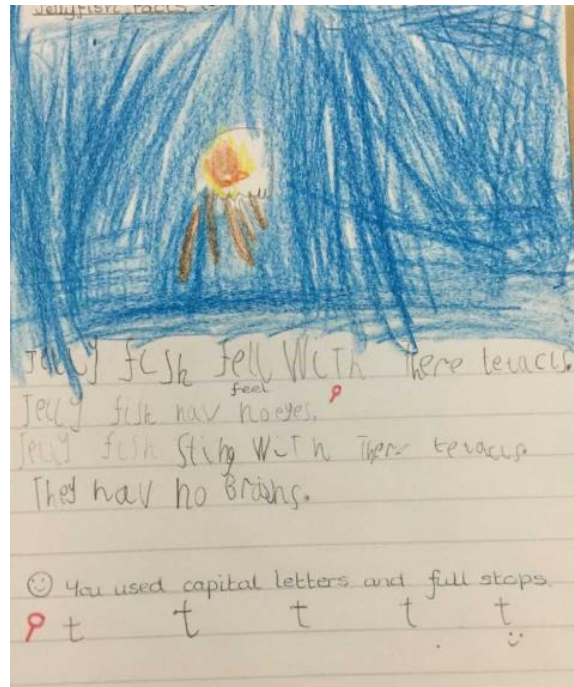 Jellyfish Facts
Jelly fish fell with there tetacls.
feel
Jelly fish hav no eyes.
Jelly fish sting with there tetacls.
They hav no Brains.
You used capital letters and full stops.
t t t t t